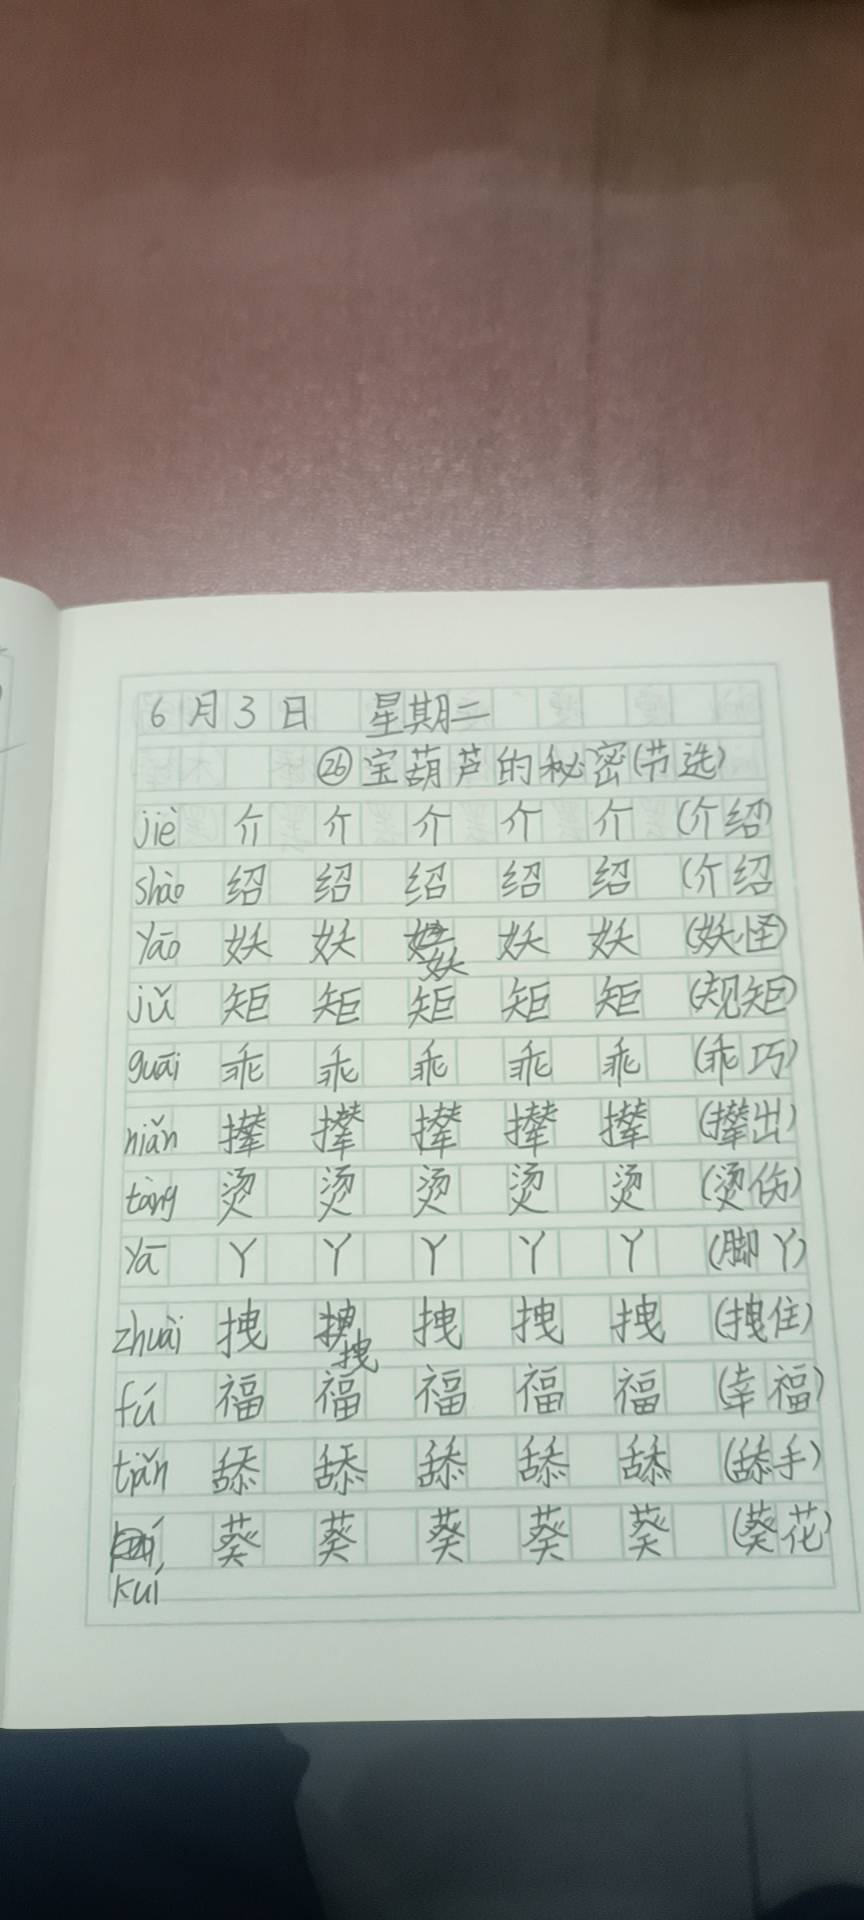 6月3日 星期二
㉖宝葫芦的秘密(节选)
jiè 介 介 介 介 介 (介绍)
shào 绍 绍 绍 绍 绍 (介绍
yāo 妖 妖 妖 妖 妖 (妖怪)
jǔ 矩 矩 矩 矩 矩 (规矩)
guāi 乖 乖 乖 乖 乖 (乖巧)
niǎn 撵 撵 撵 撵 撵 (撵出)
tàng 烫 烫 烫 烫 烫 (烫伤)
yā 丫 丫 丫 丫 丫 (脚丫)
zhuài 拽 拽 拽 拽 拽 (拽住)
fú 福 福 福 福 福 (幸福)
tiǎn 舔 舔 舔 舔 舔 (舔手)
葵 葵 葵 葵 葵 (葵花)
kuí